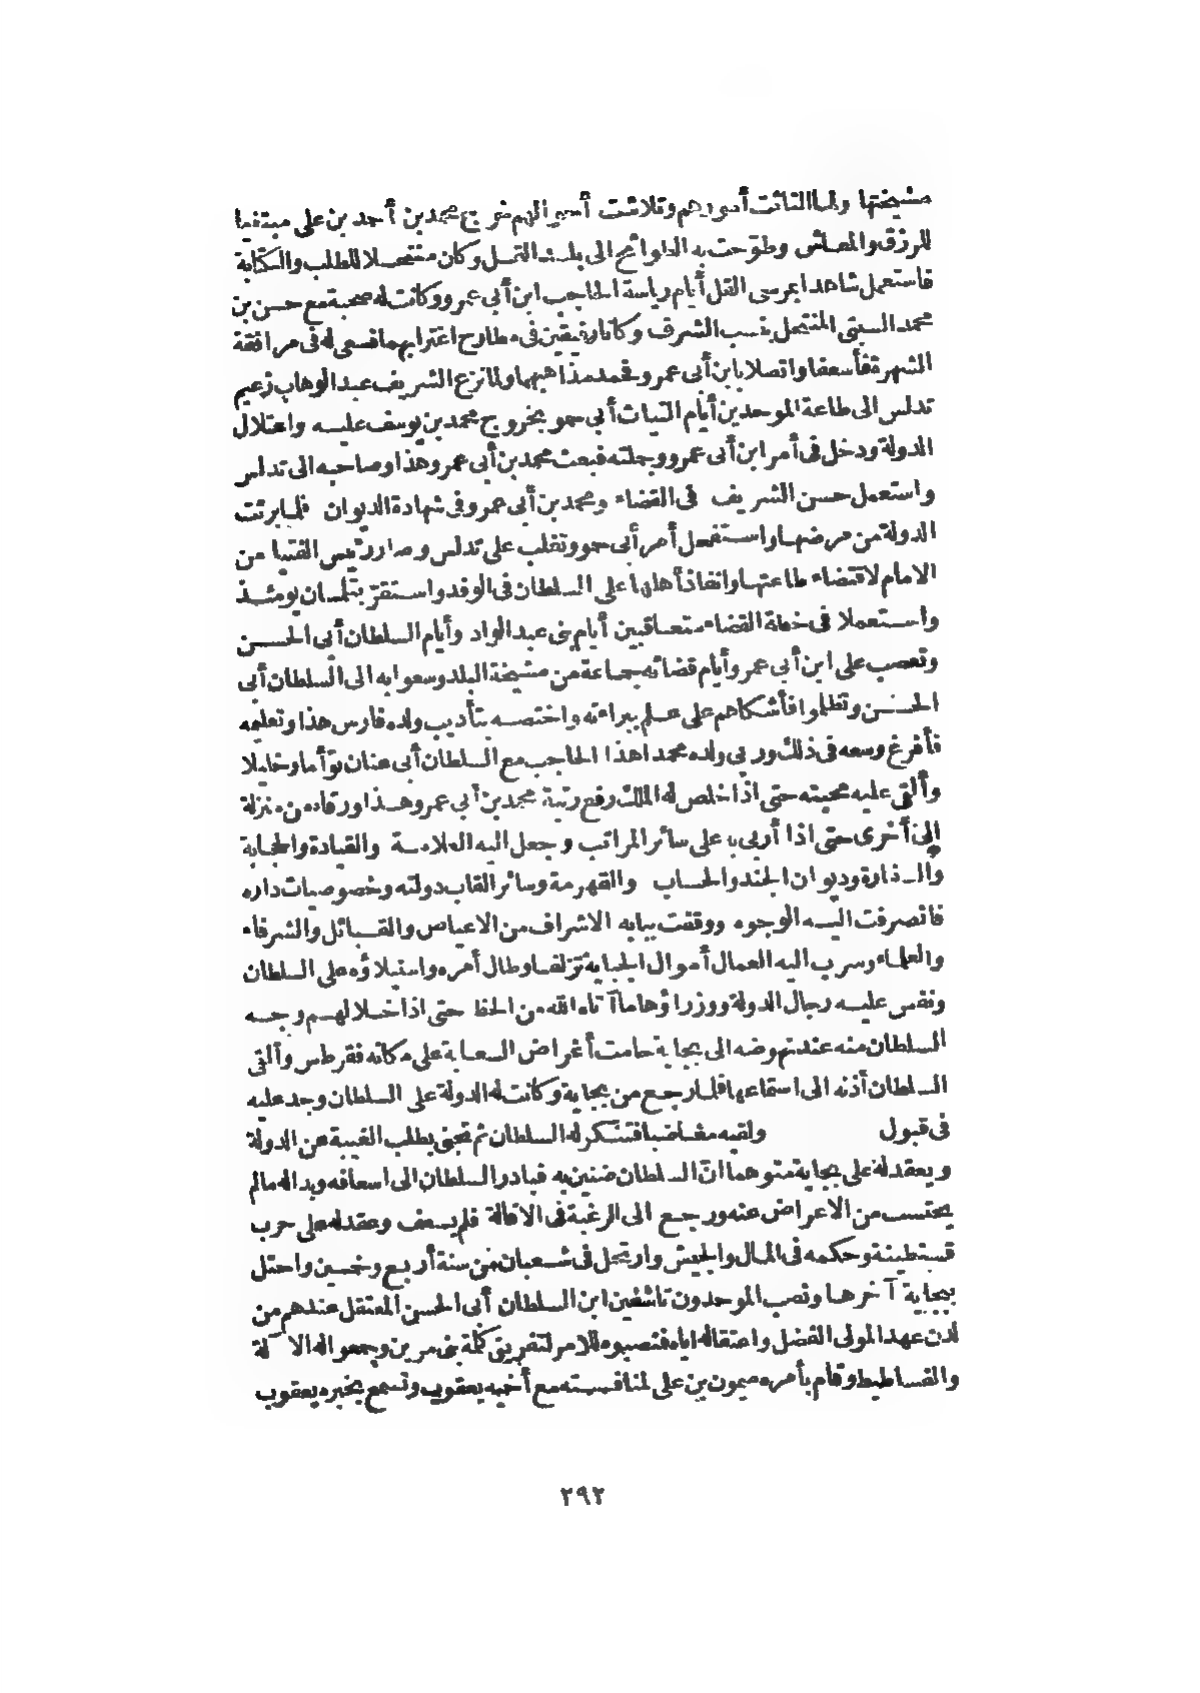 مشيختها ولما التاثت أمورهم وتلاشت أحوالهم خرج محمد بن أحمد بن على مبتغيا
للرزق والمعاش وطوّحت به الطوائح الى بلد التمل وكان منتحلا للطلب والكتابة
فاستعمل شاهدا بمرسى القل أيام رياسة الحاجب ابن أبى عمرو وكانت له صحبة مع حسن بن
محمد السبتى المنتحل بنسب الشرف وكانا رفيقين فى مطارح اغترابهما فسعى له فى مرافقة
الشهرة فأسعفا واتصلا بابن أبى عمرو فحمد مذاهبهما ولما نزع الشريف عبد الوهاب زعيم
تدلس الى طاعة الموحدين أيام التياث أبى حمو بخروج محمد بن يوسف عليه واعتلال
الدولة ودخل فى أمر ابن أبى عمرو وجملته فبعث محمد بن أبى عمرو هذا وصاحبه الى تدلس
واستعمل حسن الشريف فى القضاء ومحمد بن أبى عمرو فى شهادة الديوان فلما برئت
الدولة من مرضها واستفحل أمر أبى حمو وتغلب على تدلس وصار رئيس الفتيا من
الامام لاقتضاء طاعتها وانفاذ أهلها على السلطان فى الوفد واستقرّ بتلمسان يومئذ
واستعملا فى خطة القضاء متعاقبين أيام بنى عبد الواد وأيام السلطان أبى الحسن
وتعصب على ابن أبى عمرو أيام قضائه جماعة من مشيخة البلد وسعوا به الى السلطان أبى
الحسن وتظلموا فأشكاهم على علم ببراءته واختصه بتأديب ولده فارس هذا وتعليمه
فأفرغ وسعه فى ذلك وربى ولده محمد اهذا الحاجب مع السلطان أبى عنان توأما وخليلا
وألقى عليه محبته حتى اذا خلص له الملك رفع رتبة محمد بن أبى عمرو هذا ورقاه من منزلة
الى أخرى حتى اذا أربى به على سائر المراتب وجعل اليه العلامة والقيادة والحجابة
والسفارة وديوان الجند والحساب والقهرمة وسائر القاب دولته وخصوصيات داره
فانصرفت اليه الوجوه ووقفت ببابه الاشراف من الاعياص والقبائل والشرفاء
والعلماء وسرب اليه العمال أموال الجباية تزلفا وطال أمره واستيلاؤه على السلطان
ونفس عليه رجال الدولة ووزراؤها ما آتاه الله من الحظ حتى اذا خلا لهم وجه
السلطان منه عند نهوضه الى بجاية حامت أغراض السعاية على مكانه فقرطس وألقى
السلطان أذنه الى استماعها فلما رجع من بجاية وكانت له الدولة على السلطان وجد عليه
فى قبول ولقيه مغاضبا فتنكر له السلطان ثم تجنى بطلب الغيبة عن الدولة
ويعقد له على بجاية متوهما انّ السلطان ضنين به فبادر السلطان الى اسعافه وبدا له ما لم
يحتسب من الاعراض عنه ورجع الى الرغبة فى الاقالة فلم يسعف وعقد له على حرب
قسنطينة وحكمه فى المال والجيش وارتحل فى شعبان من سنة أربع وخمسين واحتل
بجاية آخرها ونصب الموحدون تاشفين ابن السلطان أبى الحسن المعتقل عندهم من
لدن عهد المولى الفضل واعتقاله اياه فنصبوه للامر لتفريق كلمة بنى مرين وجمعوا له الآلة
والفساطيط وقام بأمره ميمون بن على لمنافسته مع أخيه يعقوب وتسمع بخبره يعقوب
٢٩٢